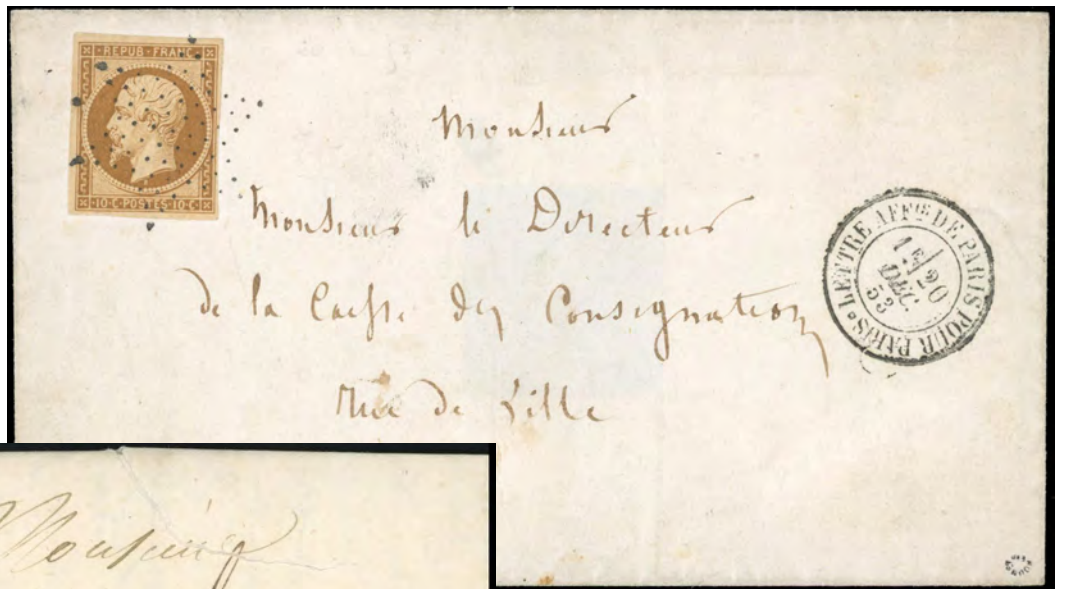 REPUB·FRANC
10·C·POSTES·10·C
Monsieur
Monsieur le Directeur
de la Caisse des Consignations
rue de Lille
LETTRE AFFie DE PARIS POUR PARIS
1E 20
DEC.
53
Monsieur